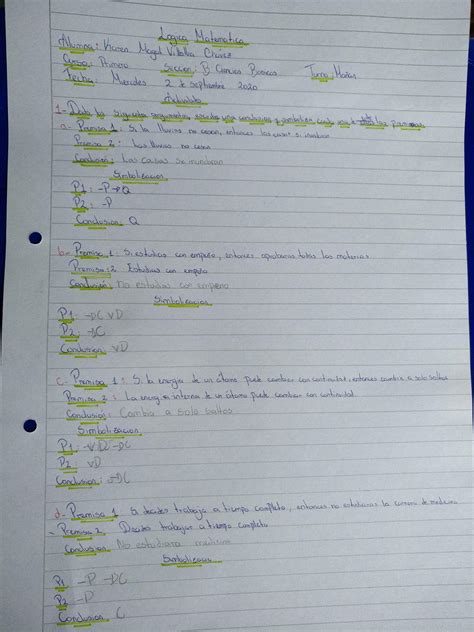 Logica Matematica
Alumna: Magali Villalba Chávez
Curso: Primero Seccion: B Ciencias Basicas Turno: Mañana
Fecha: Miercoles 2 de septiembre 2020
Actividad
1- Dados los siguientes argumentos, escribe una conclusion y simboliza cada
a- Premisa 1: Si las lluvias no cesan, entonces las casas se inundan
Premisa 2: Las lluvias no cesan
Conclusion: Las casas se inundan
Simbolizacion
P1: -P→Q
P2: -P
Conclusion: Q
b- Premisa 1: Si estudias con empeño, entonces aprobaras todas las materias
Premisa: 2 Estudias con empeño
Conclusión: No estudias con empeño
Simbolizacion
P1: -DC VD
P2: -DC
Conclusion VD
c- Premisa 1: Si la energia de un átomo puede cambiar con continuidad, entonces cambia a solo saltos
Premisa 2: La energia interna de un átomo puede cambiar con continuidad.
Conclusión: Cambia a solo saltos
Simbolizacion
P1: -VD -DC
P2: VD
Conclusion: -DC
d- Premisa 1: Si decides trabajar a tiempo completo, entonces no estudiaras la carrera de medicina
Premisa 2: Decides trabajar a tiempo completo
Conclusion: No estudiaras medicina
Simbolizacion
P1 -P -DC
P2 -P
Conclusion C